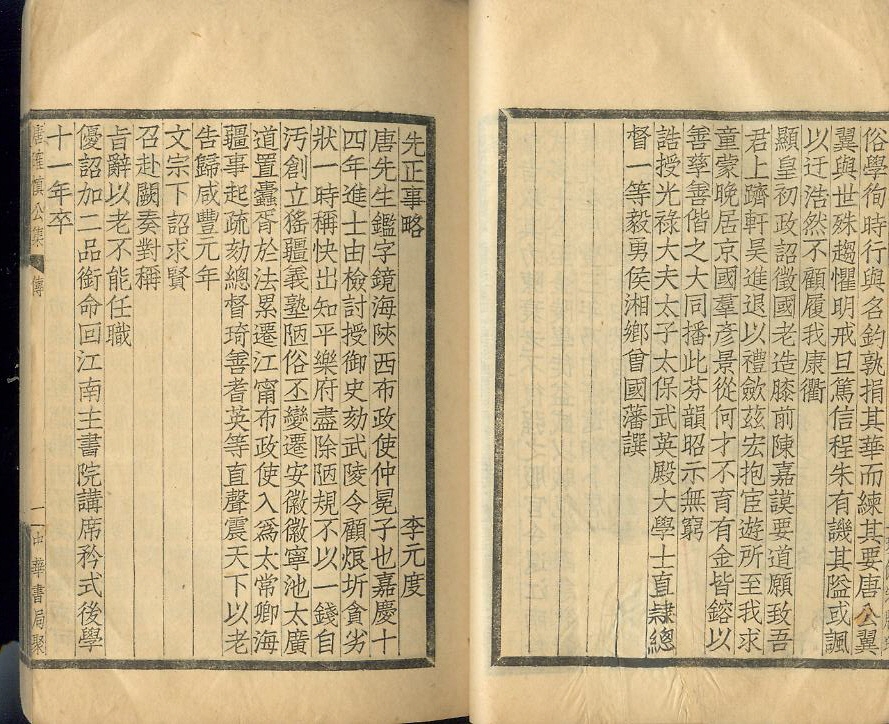 俗學徇時行與名鈞孰捐其華而練其要唐公翼
翼與世殊趨懼明戒旦篤信程朱有譏其隘或諷
以迂浩然不顧履我康衢
顯皇初政詔徵國老造膝前陳嘉謨要道願致吾
君上躋軒昊進退以禮斂茲宏抱宦遊所至我求
童蒙晚居京國羣彥景從何才不育有金皆鎔以
善孳善偕之大同播此芬韻昭示無窮
誥授光祿大夫太子太保武英殿大學士直隸總
督一等毅勇侯湘鄉曾國藩譔
先正事略 李元度
唐先生鑑字鏡海陝西布政使仲冕子也嘉慶十
四年進士由檢討授御史劾武陵令顧烺圻貪劣
狀一時稱快出知平樂府盡除陋規不以一錢自
汚創立猺疆義塾陋俗丕變遷安徽徽寧池太廣
道置蠹胥於法累遷江甯布政使入爲太常卿海
疆事起疏劾總督琦善耆英等直聲震天下以老
告歸咸豐元年
文宗下詔求賢
召赴闕奏對稱
旨辭以老不能任職
優詔加二品銜命回江南主書院講席矜式後學
十一年卒
唐確慎公集 傳 二 中華書局聚